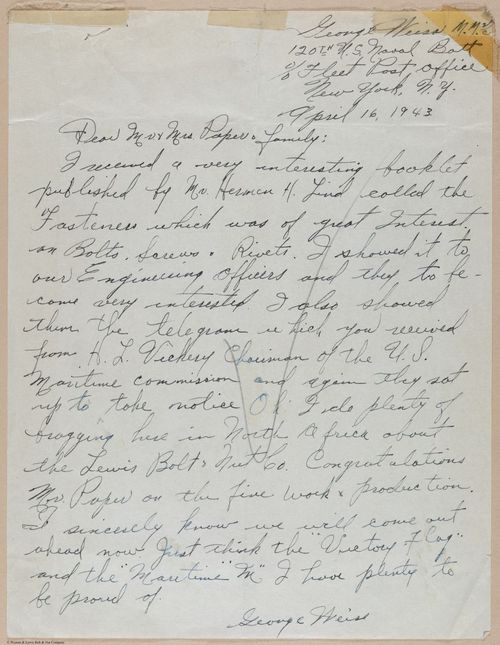 George Weiss M.M.2/c
120TH U.S. Naval Batt
c/o Fleet Post Office
New York, N.Y.
April 16, 1943
Dear Mr & Mrs. Paper & Family:
I received a very interesting booklet
published by Mr. Herman H. Lind called the
"Fasteners which was of great Interest,
on Bolts, Screws & Rivets. I showed it to
our Engineering Officers and they to be-
come very interested I also showed
them the telegram which you received
from H. L. Vickery Chairman of the U.S.
Maritime commission and again they sat
up to take notice Oh I do plenty of
bragging here in North Africa about
the Lewis Bolt & Nut Co. Congratulations
Mr. Paper on the fine work & production.
I sincerely know we will come out
ahead now Just think the "Victory Flag"
and the "Maritime" M" I have plenty to
be proud of.
George Weiss